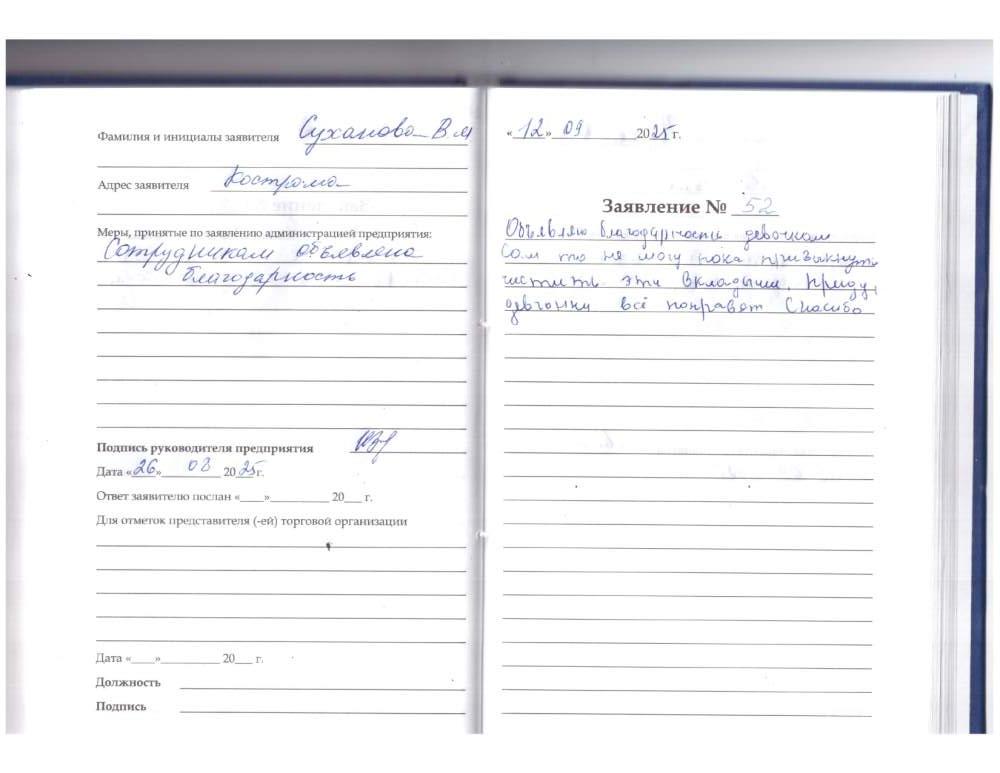 Фамилия и инициалы заявителя Суханова В М
Адрес заявителя Кострома
Меры, принятые по заявлению администрацией предприятия:
Сотрудникам объявлена
благодарность
Подпись руководителя предприятия
Дата «26» 08 2025г.
Ответ заявителю послан «___»__________ 20___ г.
Для отметок представителя (-ей) торговой организации
Дата «____»__________ 20___ г.
Должность
Подпись
«12» 09 2025г.
Заявление № 52
Объявляю благодарность девочкам
Сам то не могу пока привыкнуть
чистить эти вкладыши. Приду,
девчонки всё поправят Спасибо